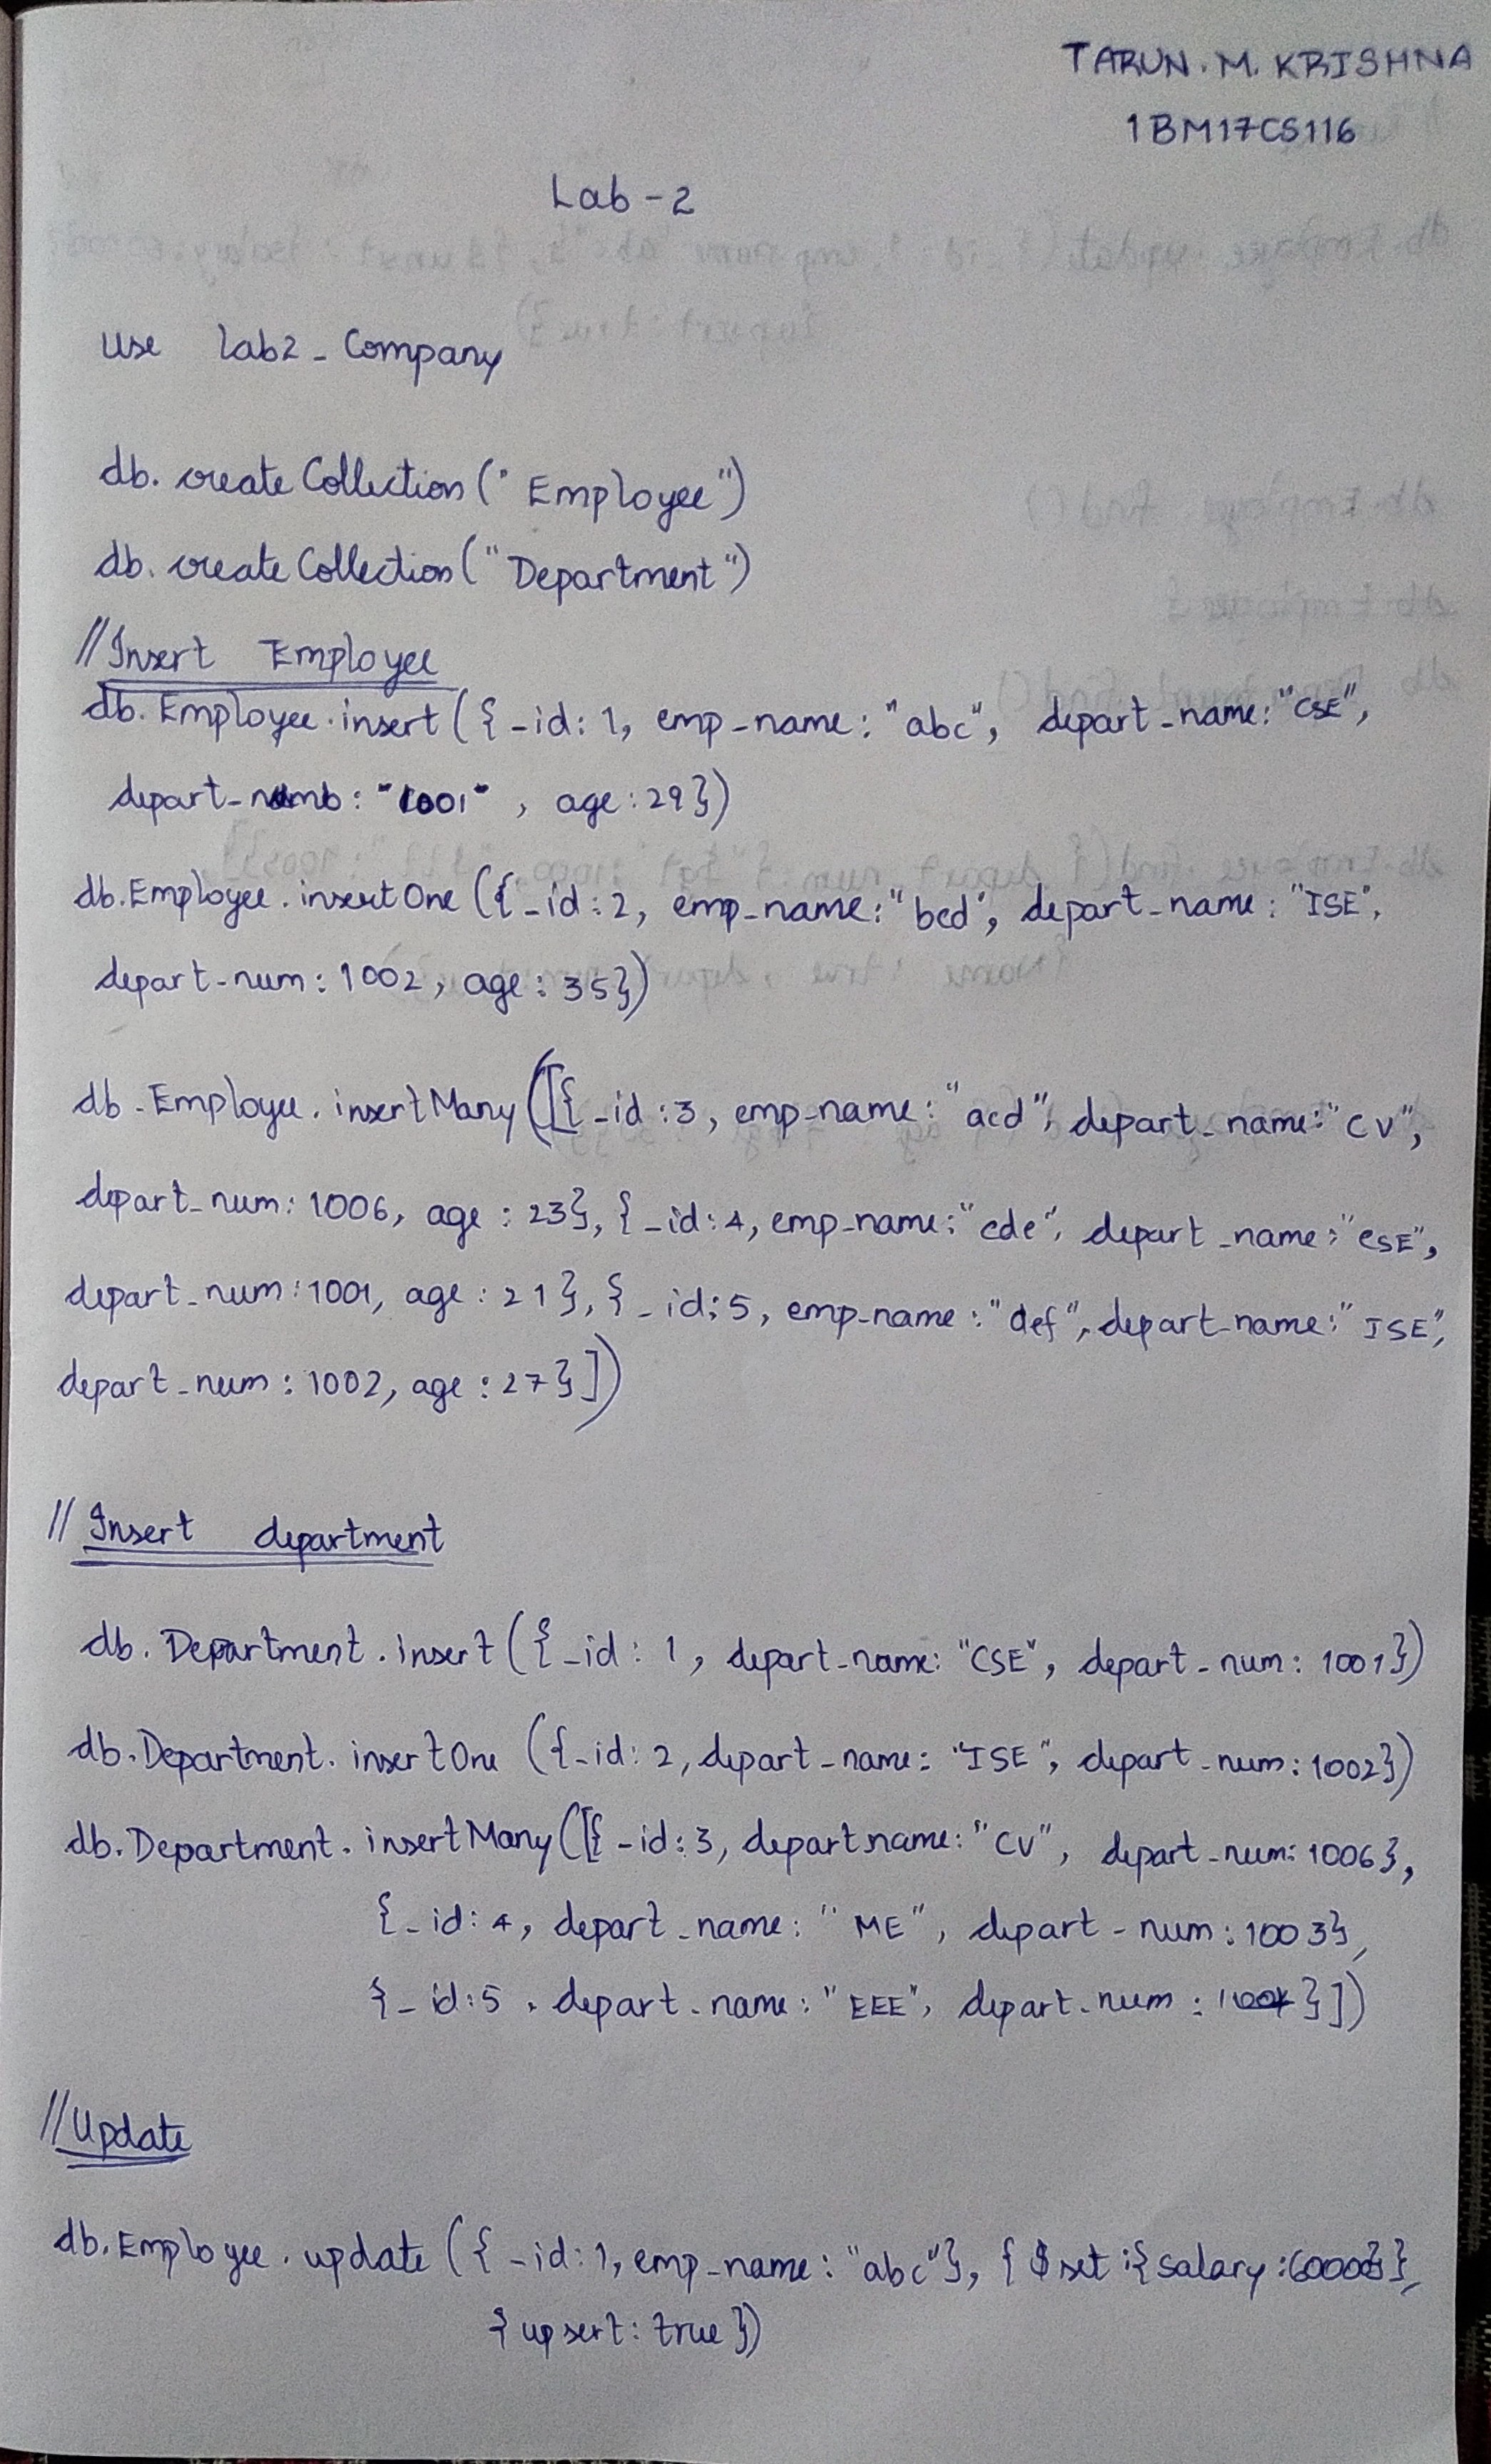 TARUN. M. KRISHNA
1BM17CS116
Lab - 2
use lab2_Company
db. createCollection("Employee")
db. createCollection("Department")
//Insert Employee
db. Employee.insert({_id: 1, emp_name: "abc", depart_name: "CSE",
depart_numb: "1001", age: 29})
db.Employee.insertOne({_id: 2, emp_name: "bcd", depart_name: "ISE",
depart_num: 1002, age: 35})
db.Employee.insertMany([{_id: 3, emp_name: "acd", depart_name: "CV",
depart_num: 1006, age: 23}, {_id: 4, emp_name: "cde", depart_name: "CSE",
depart_num: 1001, age: 21}, {_id: 5, emp_name: "def", depart_name: "ISE",
depart_num: 1002, age: 27}])
// Insert department
db. Department.insert({_id: 1, depart_name: "CSE", depart_num: 1001})
db.Department.insertOne({_id: 2, depart_name: "ISE", depart_num: 1002})
db.Department.insertMany([{_id: 3, departname: "CV", depart_num: 1006},
{_id: 4, depart_name: "ME", depart_num: 1003},
{_id: 5, depart_name: "EEE", depart_num: }])
//Update
db.Employee.update({_id: 1, emp_name: "abc"}, {$set:{salary:60000}},
{upsert: true})